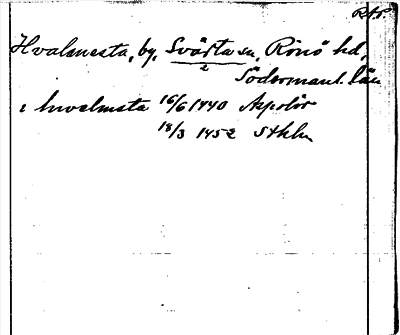 RAP.
Hvalmesta, by, Svärta sn, Rönö hd,
2
Södermanl. län
i hwalmsta 16/6 1440 Aspolör
18/3 1452 Sthlm